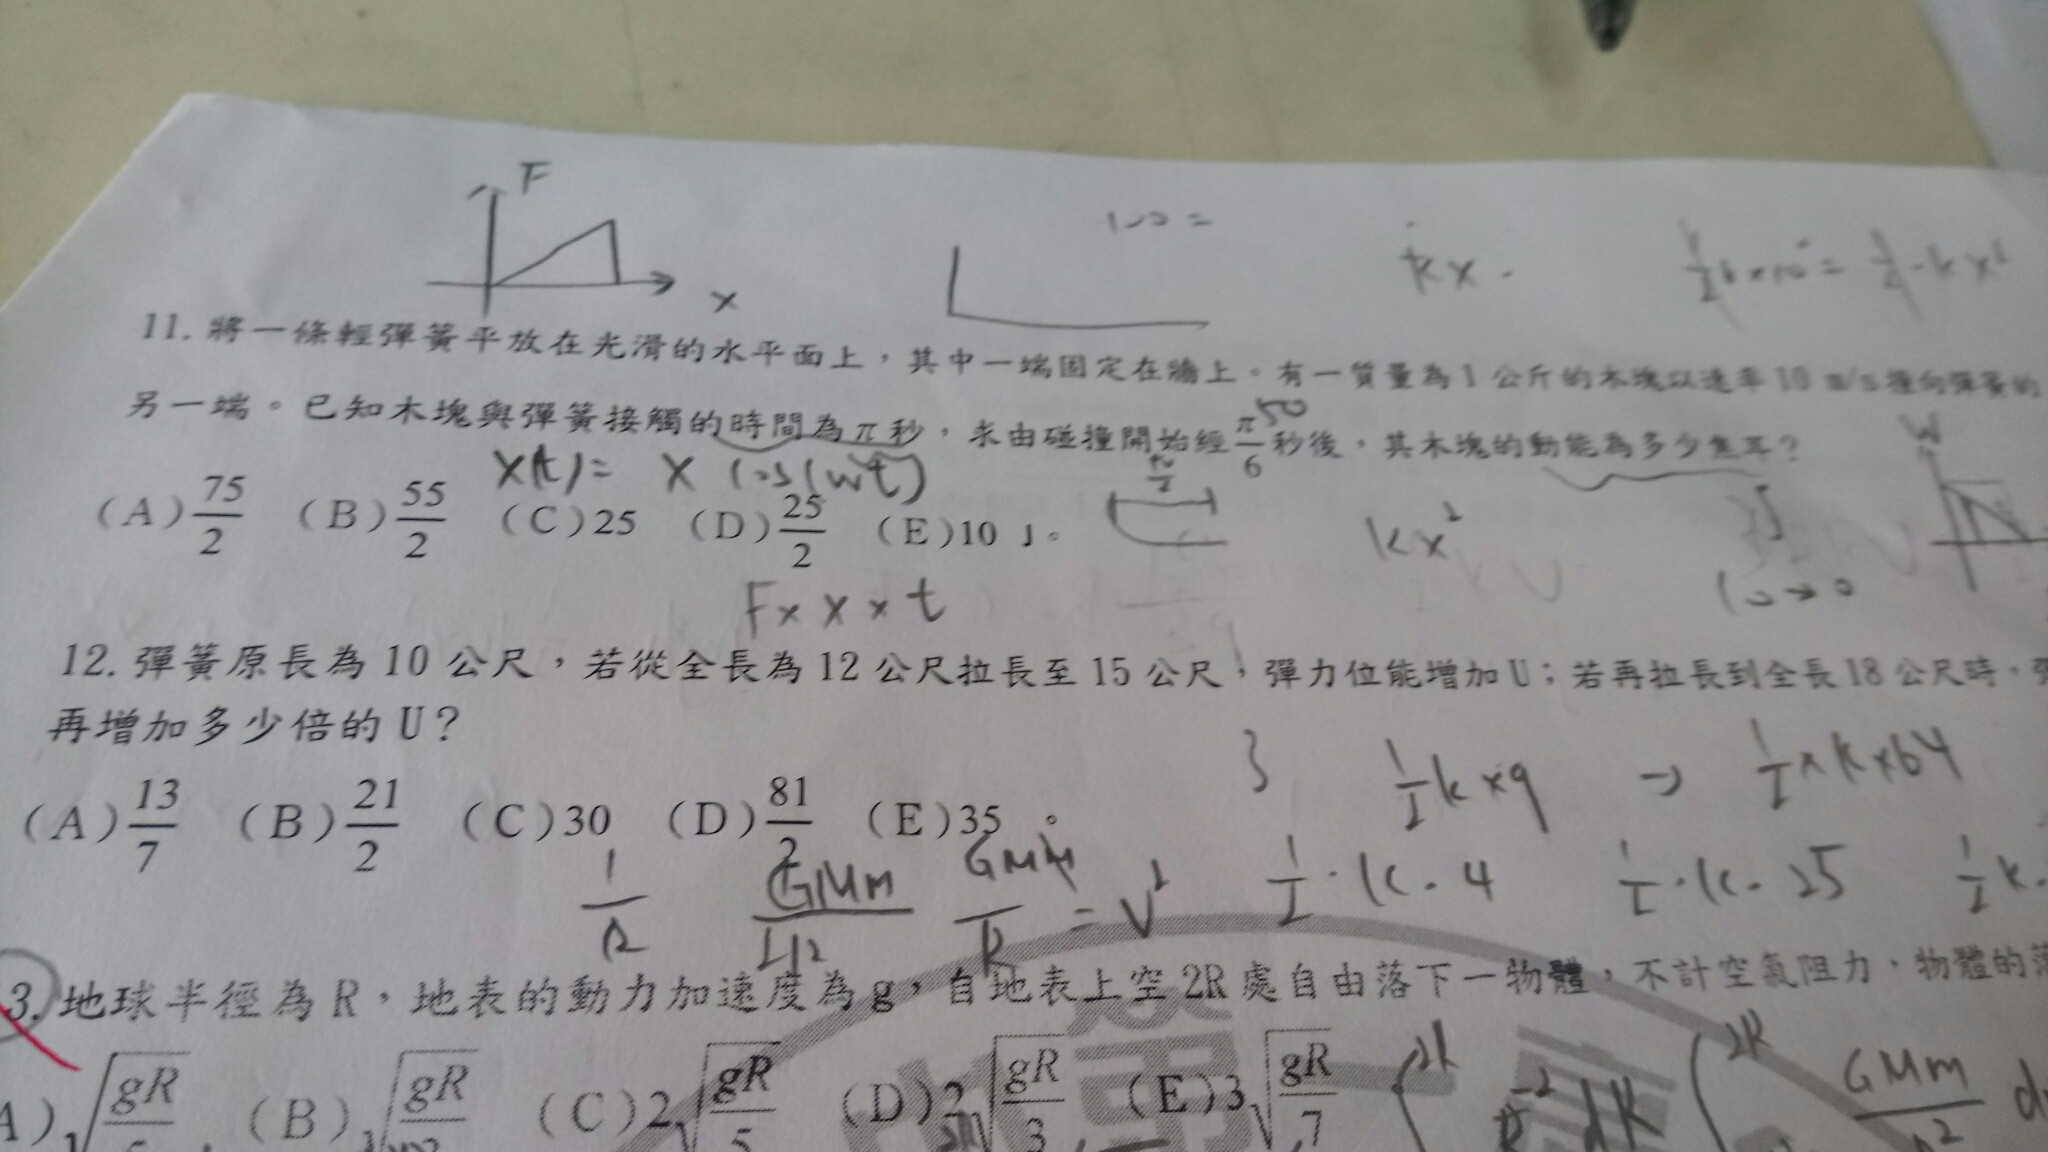 F
100 =
kx.
x
11. 將一條輕彈簧平放在光滑的水平面上，其中一端固定在牆上。有一質量為1公斤的木塊以速率10 m/s撞向彈簧的
另一端。已知木塊與彈簧接觸的時間為π秒，求由碰撞開始經π/6秒後，其木塊的動能為多少焦耳？
50
W
x(t) = x cos(wt)
(A) 75/2 (B) 55/2 (C)25 (D) 25/2 (E)10 J。
kx²
10→0
F× x × t
12. 彈簧原長為10公尺，若從全長為12公尺拉長至15公尺，彈力位能增加U；若再拉長到全長18公尺時，彈
再增加多少倍的U？
3 1/2 k×9 → 1/2 × k×64
(A) 13/7 (B) 21/2 (C)30 (D) 81/2 (E)35 。
1/R GMm GMm/R = V² 1/2 · k · 4 1/2 · k · 25 1/2 k.
3. 地球半徑為R，地表的動力加速度為g，自地表上空2R處自由落下一物體，不計空氣阻力，物體的落
A) √gR (B) √gR (C)2√gR/5 (D)2√gR/3 (E)3√gR/7
2R R⁻² dR 2R GMm